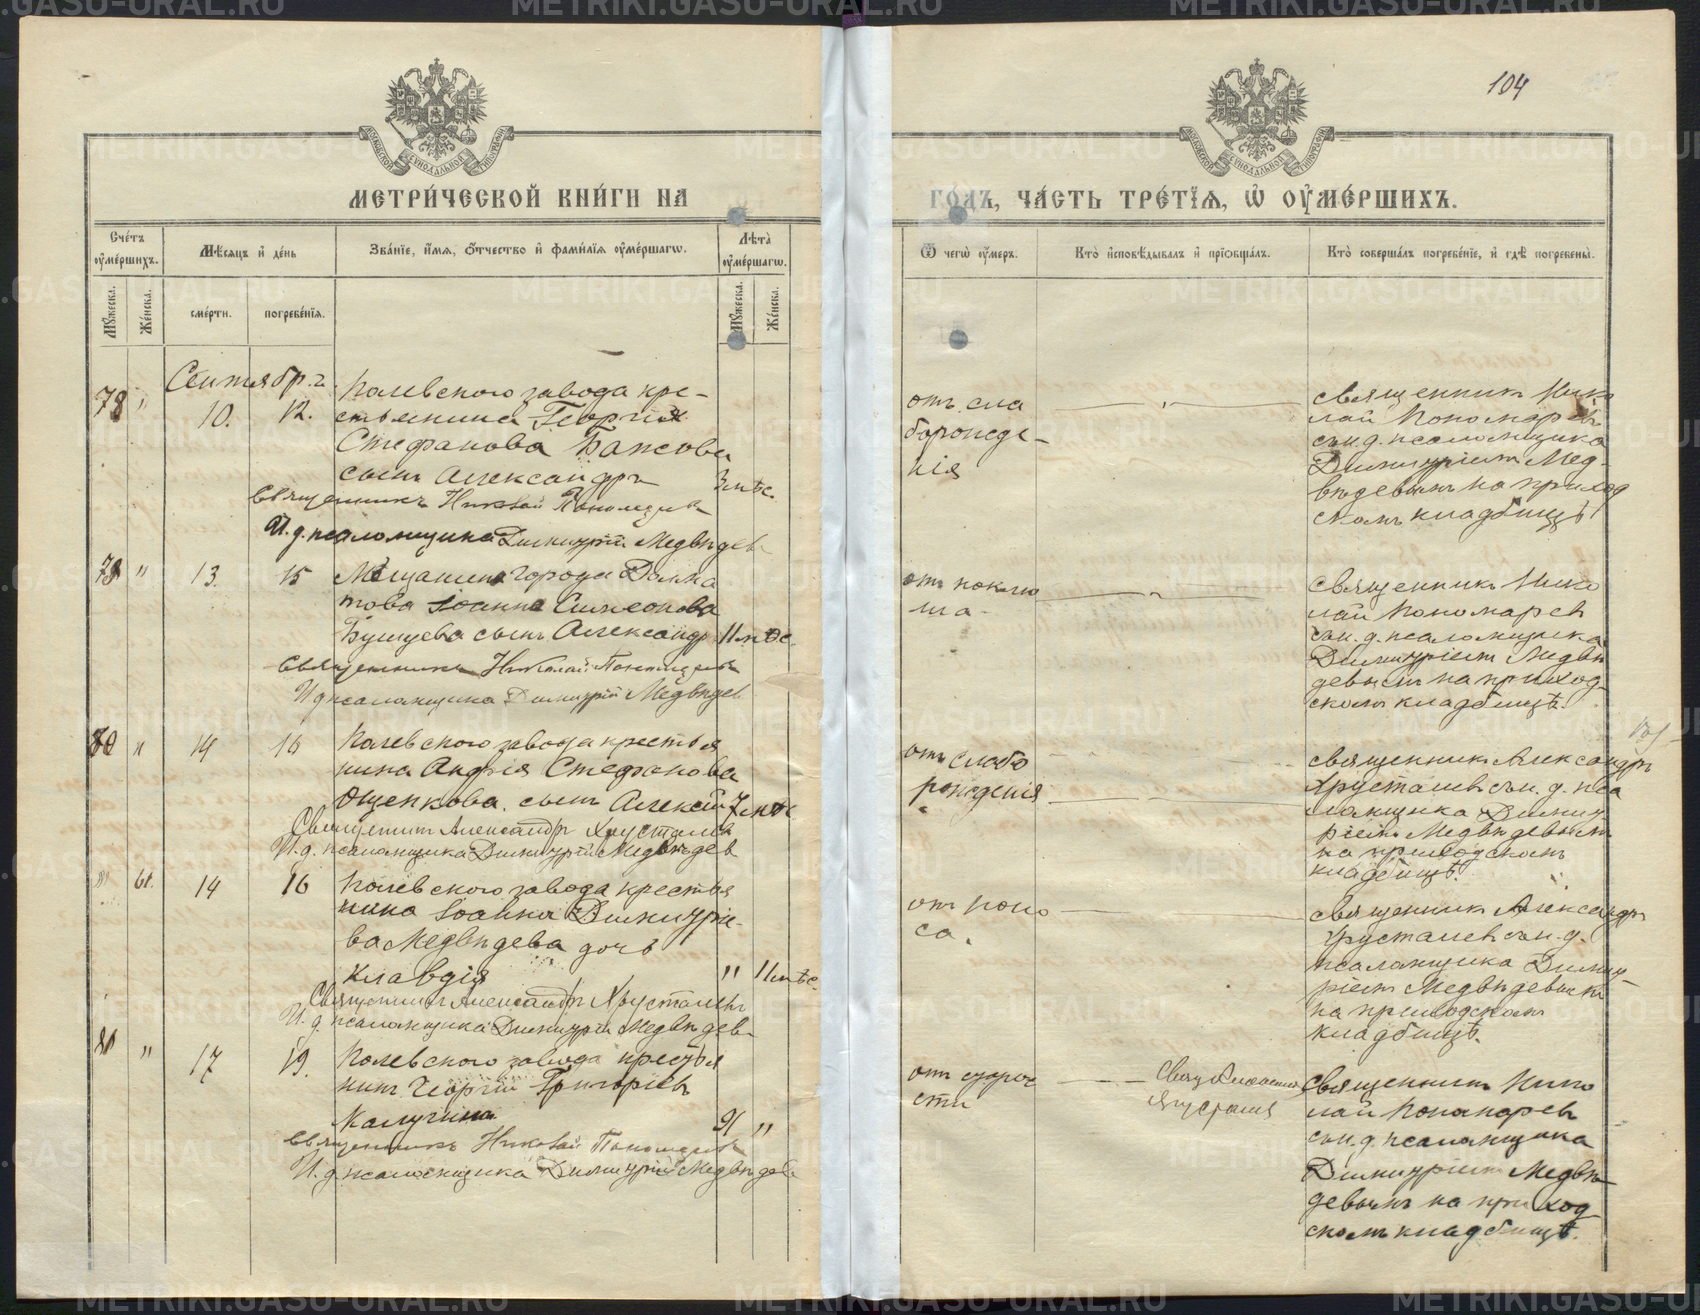 104
МЕТРИ́ЧЕСКОЙ КНИ́ГИ НА
ГО́ДЪ, ЧА́СТЬ ТРЕ́ТЇЯ, Ѡ҆ ОУ҆МЕ́РШИХЪ.
Сче́тъ оу҆ме́ршихъ.
Мѣ́сяцъ и҆ де́нь
Зва́нїе, и҆́мя, ѻ҆́тчество и҆ фами́лїя оу҆ме́ршагѡ.
Лѣ́та оу҆ме́ршагѡ.
Ѿ чегѡ̀ оу҆́меръ.
Кто̀ и҆сповѣ́дывалъ и҆ прїѡбща́лъ.
Кто̀ соверша́лъ погребе́нїе, и҆ гдѣ̀ погребены̀.
Мꙋ́жеска.
Же́нска.
сме́рти.
погребе́нїѧ.
Мꙋ́жеска.
Же́нска.
Сентябр.
78 " 10. 12.
Полевского завода кре-
стьянина Георгія
Стефанова
сынъ Александръ 3 мѣс.
Священникъ Николай Пономаревъ
И. д. псаломщика Димитрій Медвѣдевъ
отъ сла
борожде-
нія
священникъ Нико
лай Пономаревъ
съ и. д. псаломщика
Димитріемъ Мед-
вѣдевымъ на приход
скомъ кладбищѣ
79 " 13. 15
Мѣщанина города Далма
това Іоанна Симеонова
Бушуева сынъ Александръ 11 мѣс.
Священникъ Николай Пономаревъ
И д псаломщика Димитрій Медвѣдев
отъ коклю
ша-
священникъ Нико
лай Пономаревъ
съ и. д. псаломщика
Димитріемъ Медвѣ
девымъ на приход-
скомъ кладбищѣ.
80 " 14 16
Полевского завода крестья
нина Андрея Стефанова
Ощепкова сынъ Алексѣй 7 мѣс
Священникъ Александръ Хрусталевъ
И. д. псаломщика Димитрій Медвѣдев
отъ слабо
рожденія
священникъ Александръ
Хрусталевъ съ и. д. пса
ломщика Димит
ріемъ Медвѣдевымъ
на приходскомъ
кладбищѣ.
61. 14 16
Полевского завода крестья
нина Іоанна Димитріе-
ва Медвѣдева дочь
Клавдія " 11 мѣс.
Священникъ Александръ Хрусталевъ
И. д. псаломщика Димитрій Медвѣдевъ
отъ поно
са.
священникъ Александръ
Хрусталевъ съ и. д.
псаломщика Димит
ріемъ Медвѣдевымъ
на приходскомъ
кладбищѣ.
81 " 17 19.
Полевского завода крестья
нинъ Георгій Григорьевъ
Калугинъ 91 "
Священникъ Николай Пономаревъ
И. д. псаломщика Димитрій Медвѣдевъ
отъ старо
сти
Свящ. Александръ
Хрусталев
священникъ Нико
лай Пономаревъ
съ и. д. псаломщика
Димитріемъ Медвѣ-
девымъ на приход
скомъ кладбищѣ.
METRIKI.GASO-URAL.RU